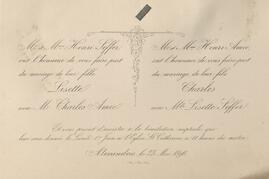 M. & Mme Henri Seffer
ont l'honneur de vous faire part
du mariage de leur fille
Lisette
avec M. Charles
M. & Mme Henri
ont l'honneur de vous faire part
du mariage de leur fils
Charles
avec Mlle Lisette Seffer
Et vous prient d'assister à la bénédiction nuptiale qui
leur sera donnée le Lundi 1er Juin à l'Eglise Ste Catherine à heures du matin.
Alexandrie, le 25 Mai 1896